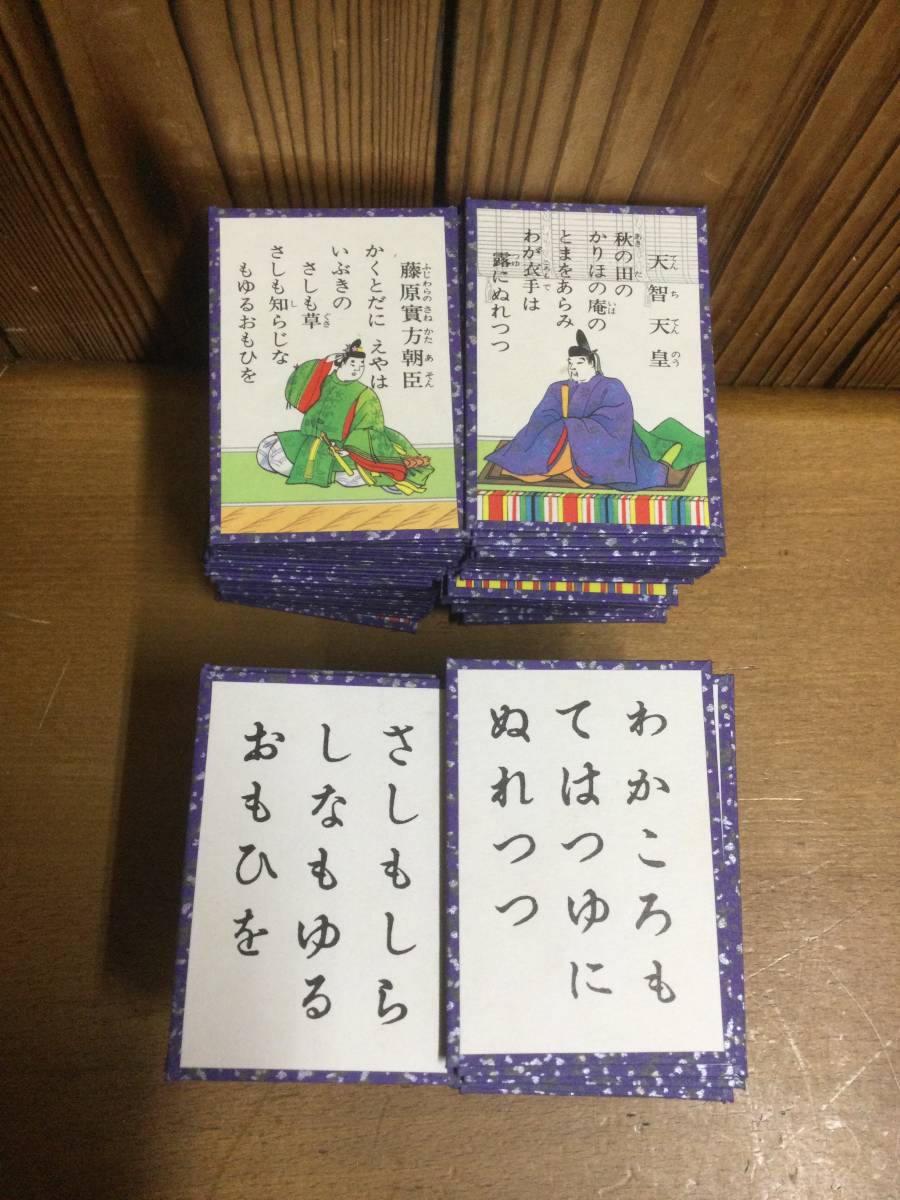 天智天皇
秋の田の
かりほの庵の
とまをあらみ
わが衣手は
露にぬれつつ
藤原實方朝臣
かくとだに えやは
いぶきの
さしも草
さしも知らじな
もゆるおもひを
わかころも
てはつゆに
ぬれつつ
さしもしら
しなもゆる
おもひを